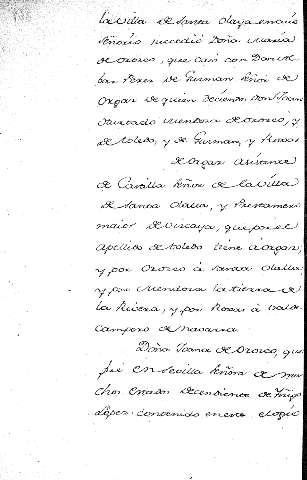 la Villa de Santa Olaya en cuio
Señorio succedió Doña Maria
de Orosco, que casó con Don Este
ban Perez de Guzman Señor de
Orgaz de quien deciende Don Juan
Hurtado Mendoza de Orosco, y
de Toledo, y de Guzman, y Rosas
de Orgaz Asistente
de Castilla Señor de la Villa
de Santa Olalla, y Prestamero
maior de Vizcaya, que por el
Apellido de Toledo tiene á Orgaz,
y por Orosco á Santa Olalla,
y por Mendoza la tierra de
la Rivera, y por Rosas á
Campero de Navarra.
Doña Juana de Orosco, que
fue en Sevilla Señora de mu
chos Estados decendiente de Iñigo
Lopez contenido en este elogio